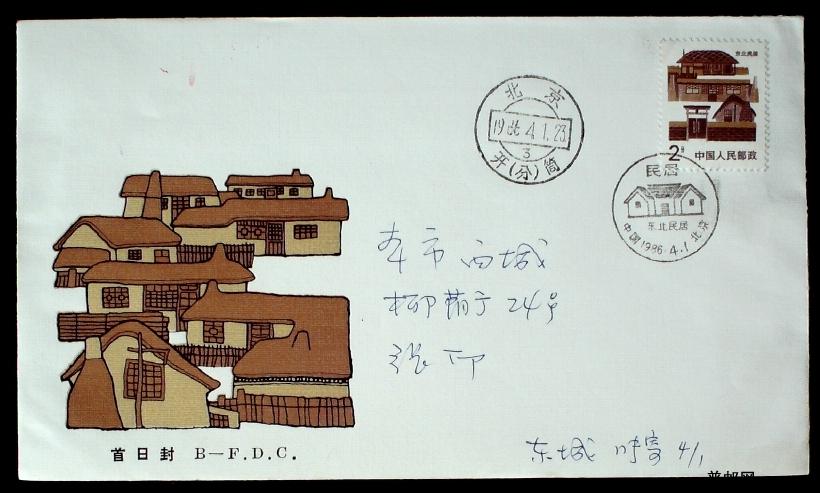 东北民居
2分
中国人民邮政
北京
1986.4.1.23
3
开(分)筒
民居
东北民居
中国1986.4.1北京
本市西城
24号
张
首日封 B—F.D.C.
东城 4/1